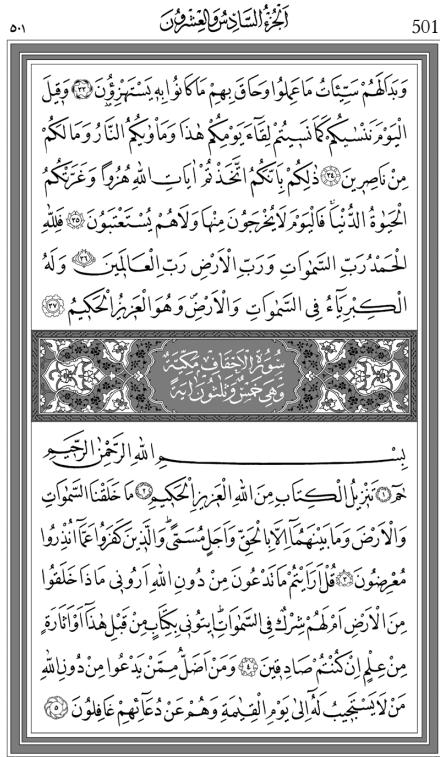 ٥٠١ اَلْجُزْءُ السَّادِسُ وَالْعِشْرُونَ 501
وَبَدَا لَهُمْ سَيِّئَاتُ مَا عَمِلُوا وَحَاقَ بِهِمْ مَا كَانُوا بِهِ يَسْتَهْزِؤُنَ ﴿٣٣﴾ وَقِيلَ
الْيَوْمَ نَنْسٰيكُمْ كَمَا نَسِيتُمْ لِقَاءَ يَوْمِكُمْ هٰذَا وَمَأْوٰيكُمُ النَّارُ وَمَا لَكُمْ
مِنْ نَاصِرِينَ ﴿٣٤﴾ ذٰلِكُمْ بِاَنَّكُمُ اتَّخَذْتُمْ اٰيَاتِ اللّٰهِ هُزُوًا وَغَرَّتْكُمُ
الْحَيٰوةُ الدُّنْيَا فَالْيَوْمَ لَا يُخْرَجُونَ مِنْهَا وَلَا هُمْ يُسْتَعْتَبُونَ ﴿٣٥﴾ فَلِلّٰهِ
الْحَمْدُ رَبِّ السَّمٰوَاتِ وَرَبِّ الْاَرْضِ رَبِّ الْعَالَمِينَ ﴿٣٦﴾ وَلَهُ
الْكِبْرِيَاءُ فِي السَّمٰوَاتِ وَالْاَرْضِ وَهُوَ الْعَزِيزُ الْحَكِيمُ ﴿٣٧﴾
سُورَةُ الْاَحْقَافِ مَكِّيَّةٌ
وَهِيَ خَمْسٌ وَثَلٰثُونَ اٰيَةً
بِسْمِ اللّٰهِ الرَّحْمٰنِ الرَّحِيمِ
حٰمٓ ﴿١﴾ تَنْزِيلُ الْكِتَابِ مِنَ اللّٰهِ الْعَزِيزِ الْحَكِيمِ ﴿٢﴾ مَا خَلَقْنَا السَّمٰوَاتِ
وَالْاَرْضَ وَمَا بَيْنَهُمَا اِلَّا بِالْحَقِّ وَاَجَلٍ مُسَمًّى وَالَّذِينَ كَفَرُوا عَمَّا اُنْذِرُوا
مُعْرِضُونَ ﴿٣﴾ قُلْ اَرَاَيْتُمْ مَا تَدْعُونَ مِنْ دُونِ اللّٰهِ اَرُونِي مَاذَا خَلَقُوا
مِنَ الْاَرْضِ اَمْ لَهُمْ شِرْكٌ فِي السَّمٰوَاتِ اِيتُونِي بِكِتَابٍ مِنْ قَبْلِ هٰذَا اَوْ اَثَارَةٍ
مِنْ عِلْمٍ اِنْ كُنْتُمْ صَادِقِينَ ﴿٤﴾ وَمَنْ اَضَلُّ مِمَّنْ يَدْعُوا مِنْ دُونِ اللّٰهِ
مَنْ لَا يَسْتَجِيبُ لَهُ اِلٰى يَوْمِ الْقِيٰمَةِ وَهُمْ عَنْ دُعَائِهِمْ غَافِلُونَ ﴿٥﴾